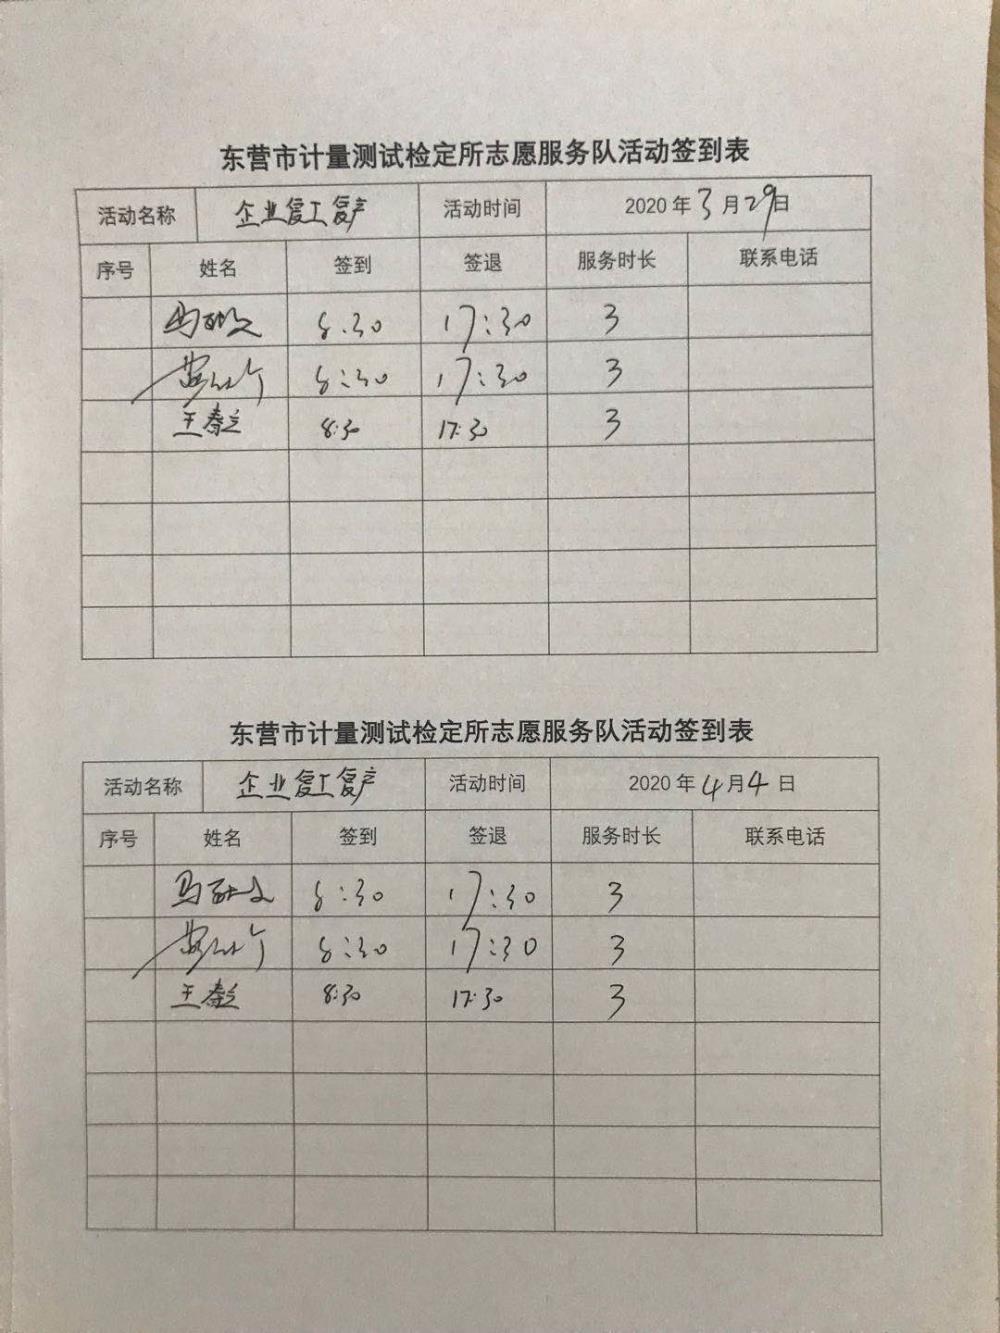 东营市计量测试检定所志愿服务队活动签到表
活动名称 企业复工复产 活动时间 2020 年 3 月 29 日
序号 姓名 签到 签退 服务时长 联系电话
马 8:30 17:30 3
8:30 17:30 3
王春 8:30 17:30 3
东营市计量测试检定所志愿服务队活动签到表
活动名称 企业复工复产 活动时间 2020 年 4 月 4 日
序号 姓名 签到 签退 服务时长 联系电话
马 8:30 17:30 3
8:30 17:30 3
王春 8:30 17:30 3